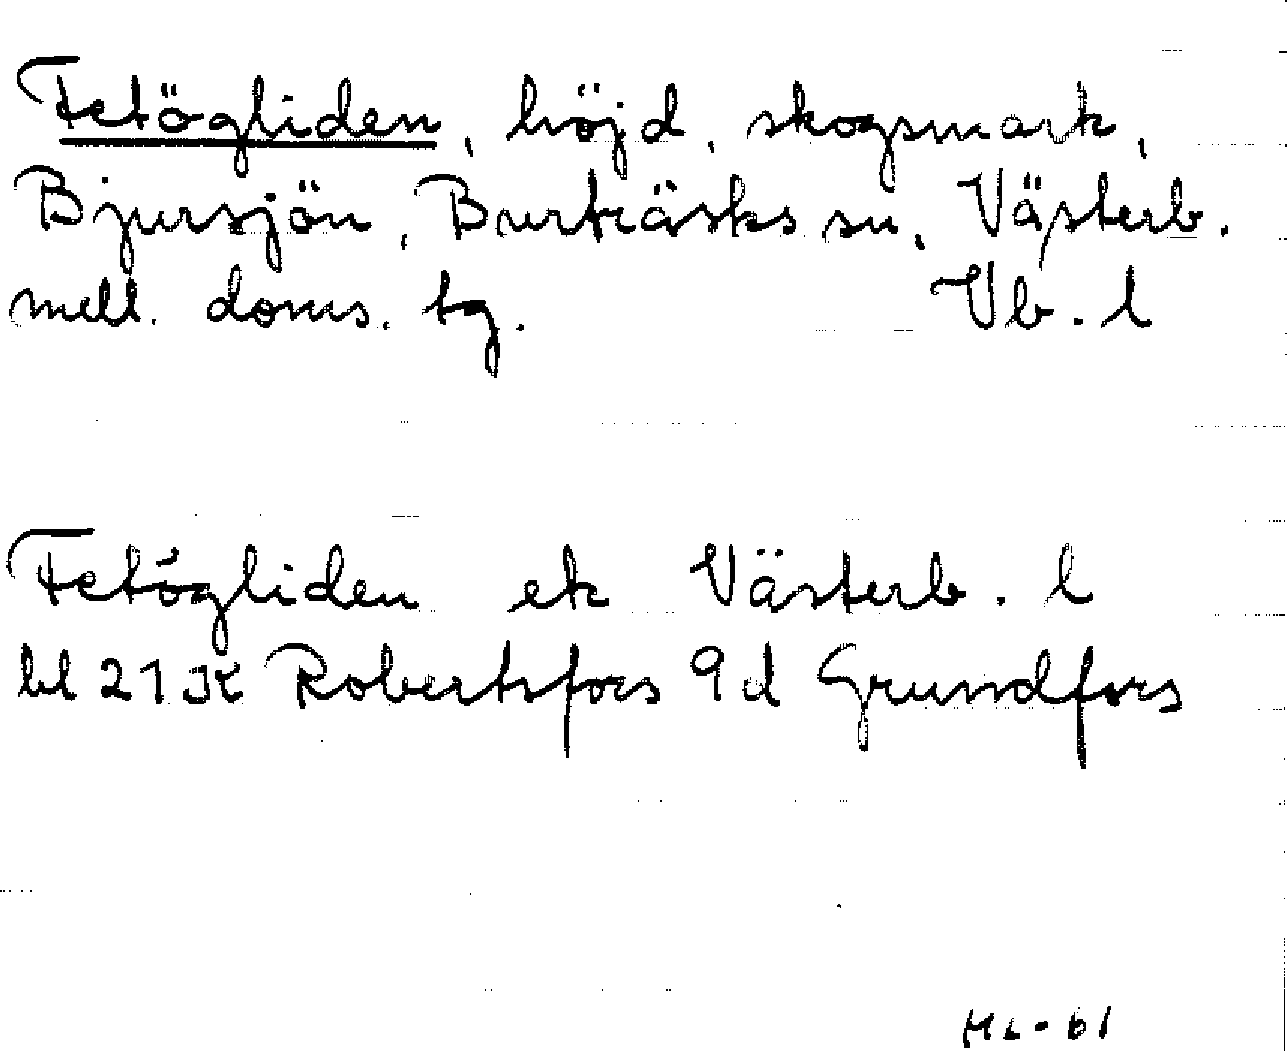 Fetögliden, höjd, skogsmark,
Bjursjön, Burträsks sn, Västerb.
mell. doms. tg. Vb. l
Fetögliden ek Västerb. l
bl 21 K Robertsfors 9d Grundfors
ML-61